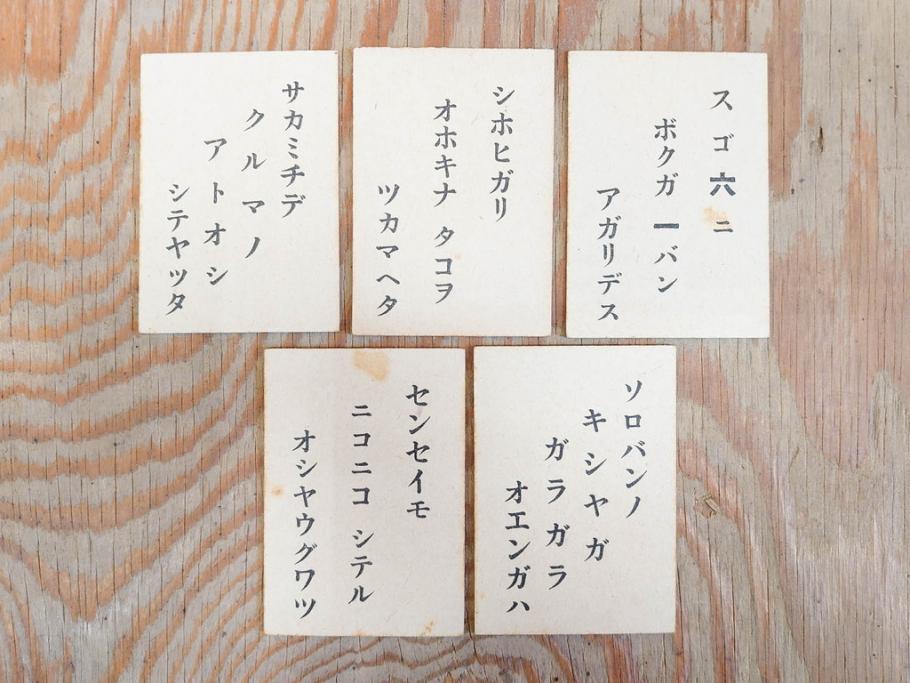 ス ゴ 六 ニ
ボクガ 一バン
アガリデス
シホヒガリ
オホキナ タコヲ
ツカマヘタ
サカミチデ
クルマノ
アトオシ
シテヤツタ
ソロバンノ
キシヤガ
ガラガラ
オエンガハ
センセイモ
ニコニコ シテル
オシヤウグワツ